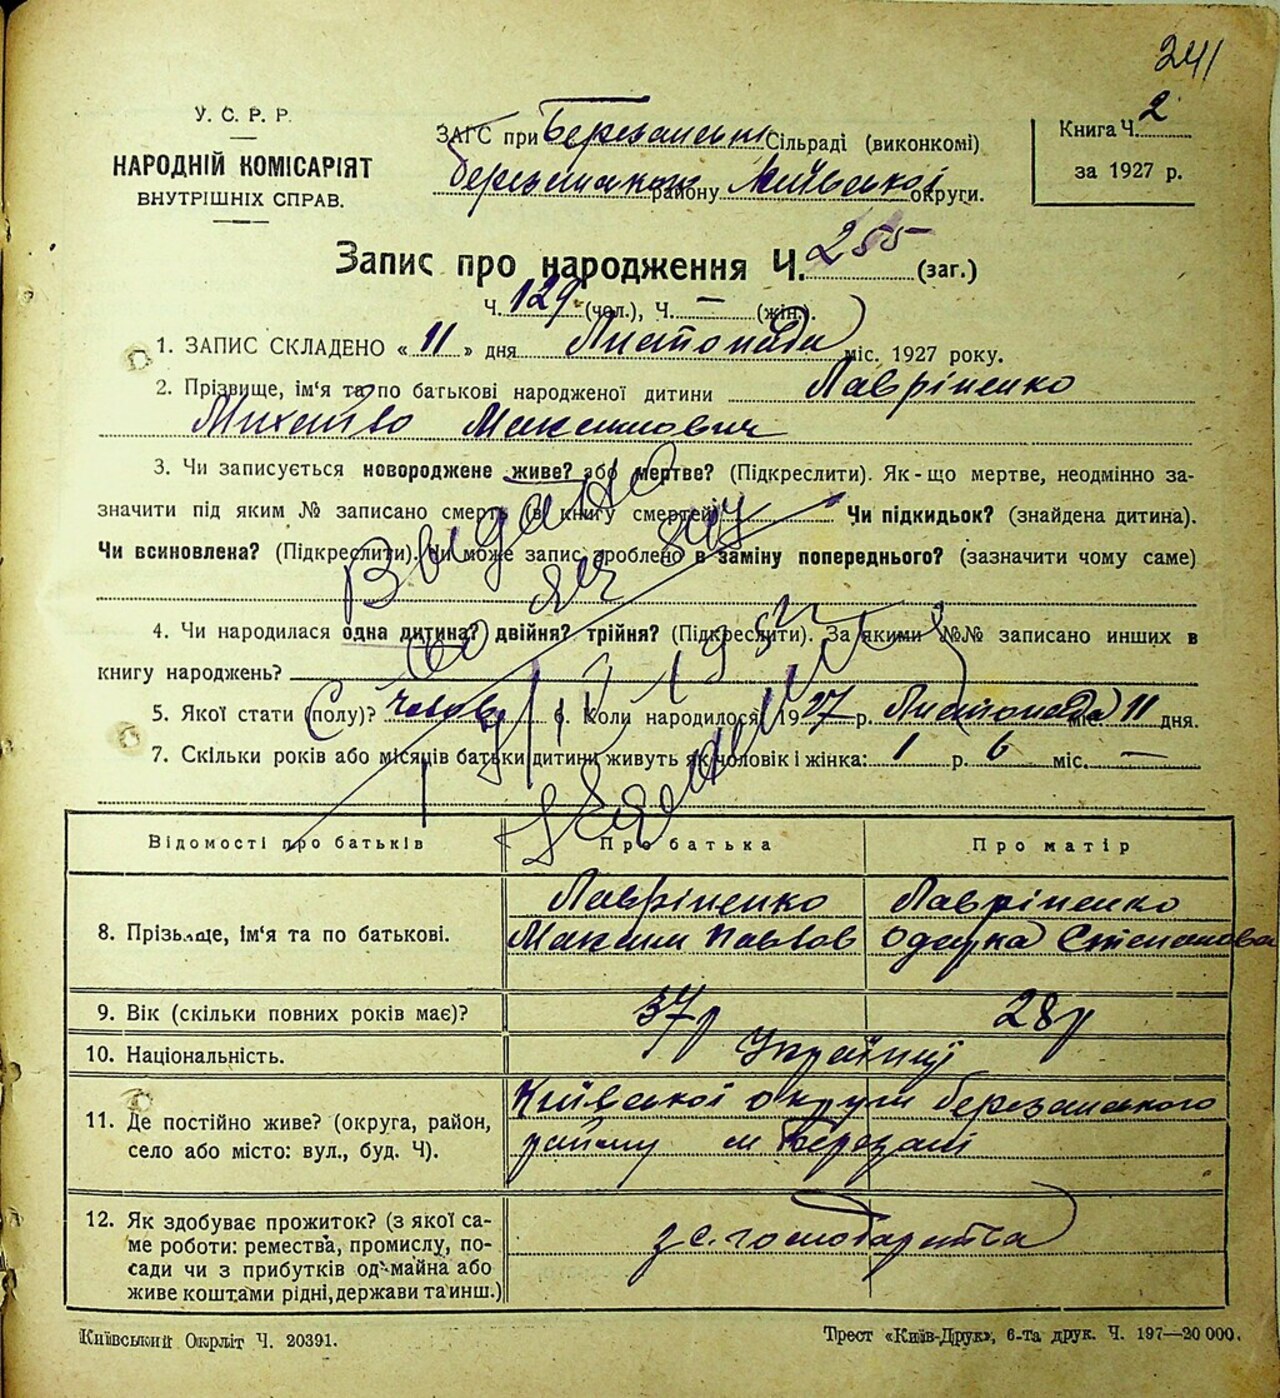 241
У. С. Р. Р.
НАРОДНІЙ КОМІСАРІЯТ
ВНУТРІШНІХ СПРАВ.
ЗАГС при Березанськ Сільраді (виконкомі)
Березанського району Київської округи.
Книга Ч. 2
за 1927 р.
Запис про народження Ч. 255 (заг.)
Ч. 129 (чол.), Ч. — (жін.).
1. ЗАПИС СКЛАДЕНО « 11 » дня Листопада міс. 1927 року.
2. Прізвище, ім‘я та по батькові народженої дитини Лавріненко
Михайло Максимович
3. Чи записується новороджене живе? або мертве? (Підкреслити). Як-що мертве, неодмінно за-
значити під яким № записано смерть (в книгу смертей) Чи підкидьок? (знайдена дитина).
Чи всиновлена? (Підкреслити). Чи може запис зроблено в заміну попереднього? (зазначити чому саме)
Видано
4. Чи народилася одна дитина? двійня? трійня? (Підкреслити). За якими №№ записано инших в
книгу народжень?
5. Якої стати (полу)? чолов 6. Коли народилося 1927 р. Листопада міс. 11 дня.
7. Скільки років або місяців батьки дитини живуть як чоловік і жінка: 1 р. 6 міс. —
Відомості про батьків Про батька Про матір
8. Прізвище, ім‘я та по батькові. Лавріненко Максим Павлов Лавріненко Одарка Степанова
9. Вік (скільки повних років має)? 37 р 28 р
10. Національність. Українці
11. Де постійно живе? (округа, район, Київської округи Березанського
село або місто: вул., буд. Ч). району м Березані
12. Як здобуває прожиток? (з якої са-
ме роботи: ремества, промислу, по- з с. господарства
сади чи з прибутків од майна або
живе коштами рідні, держави та инш.)
Київський Окрліт Ч. 20391. Трест «Київ-Друк», 6-та друк. Ч. 197—20 000.